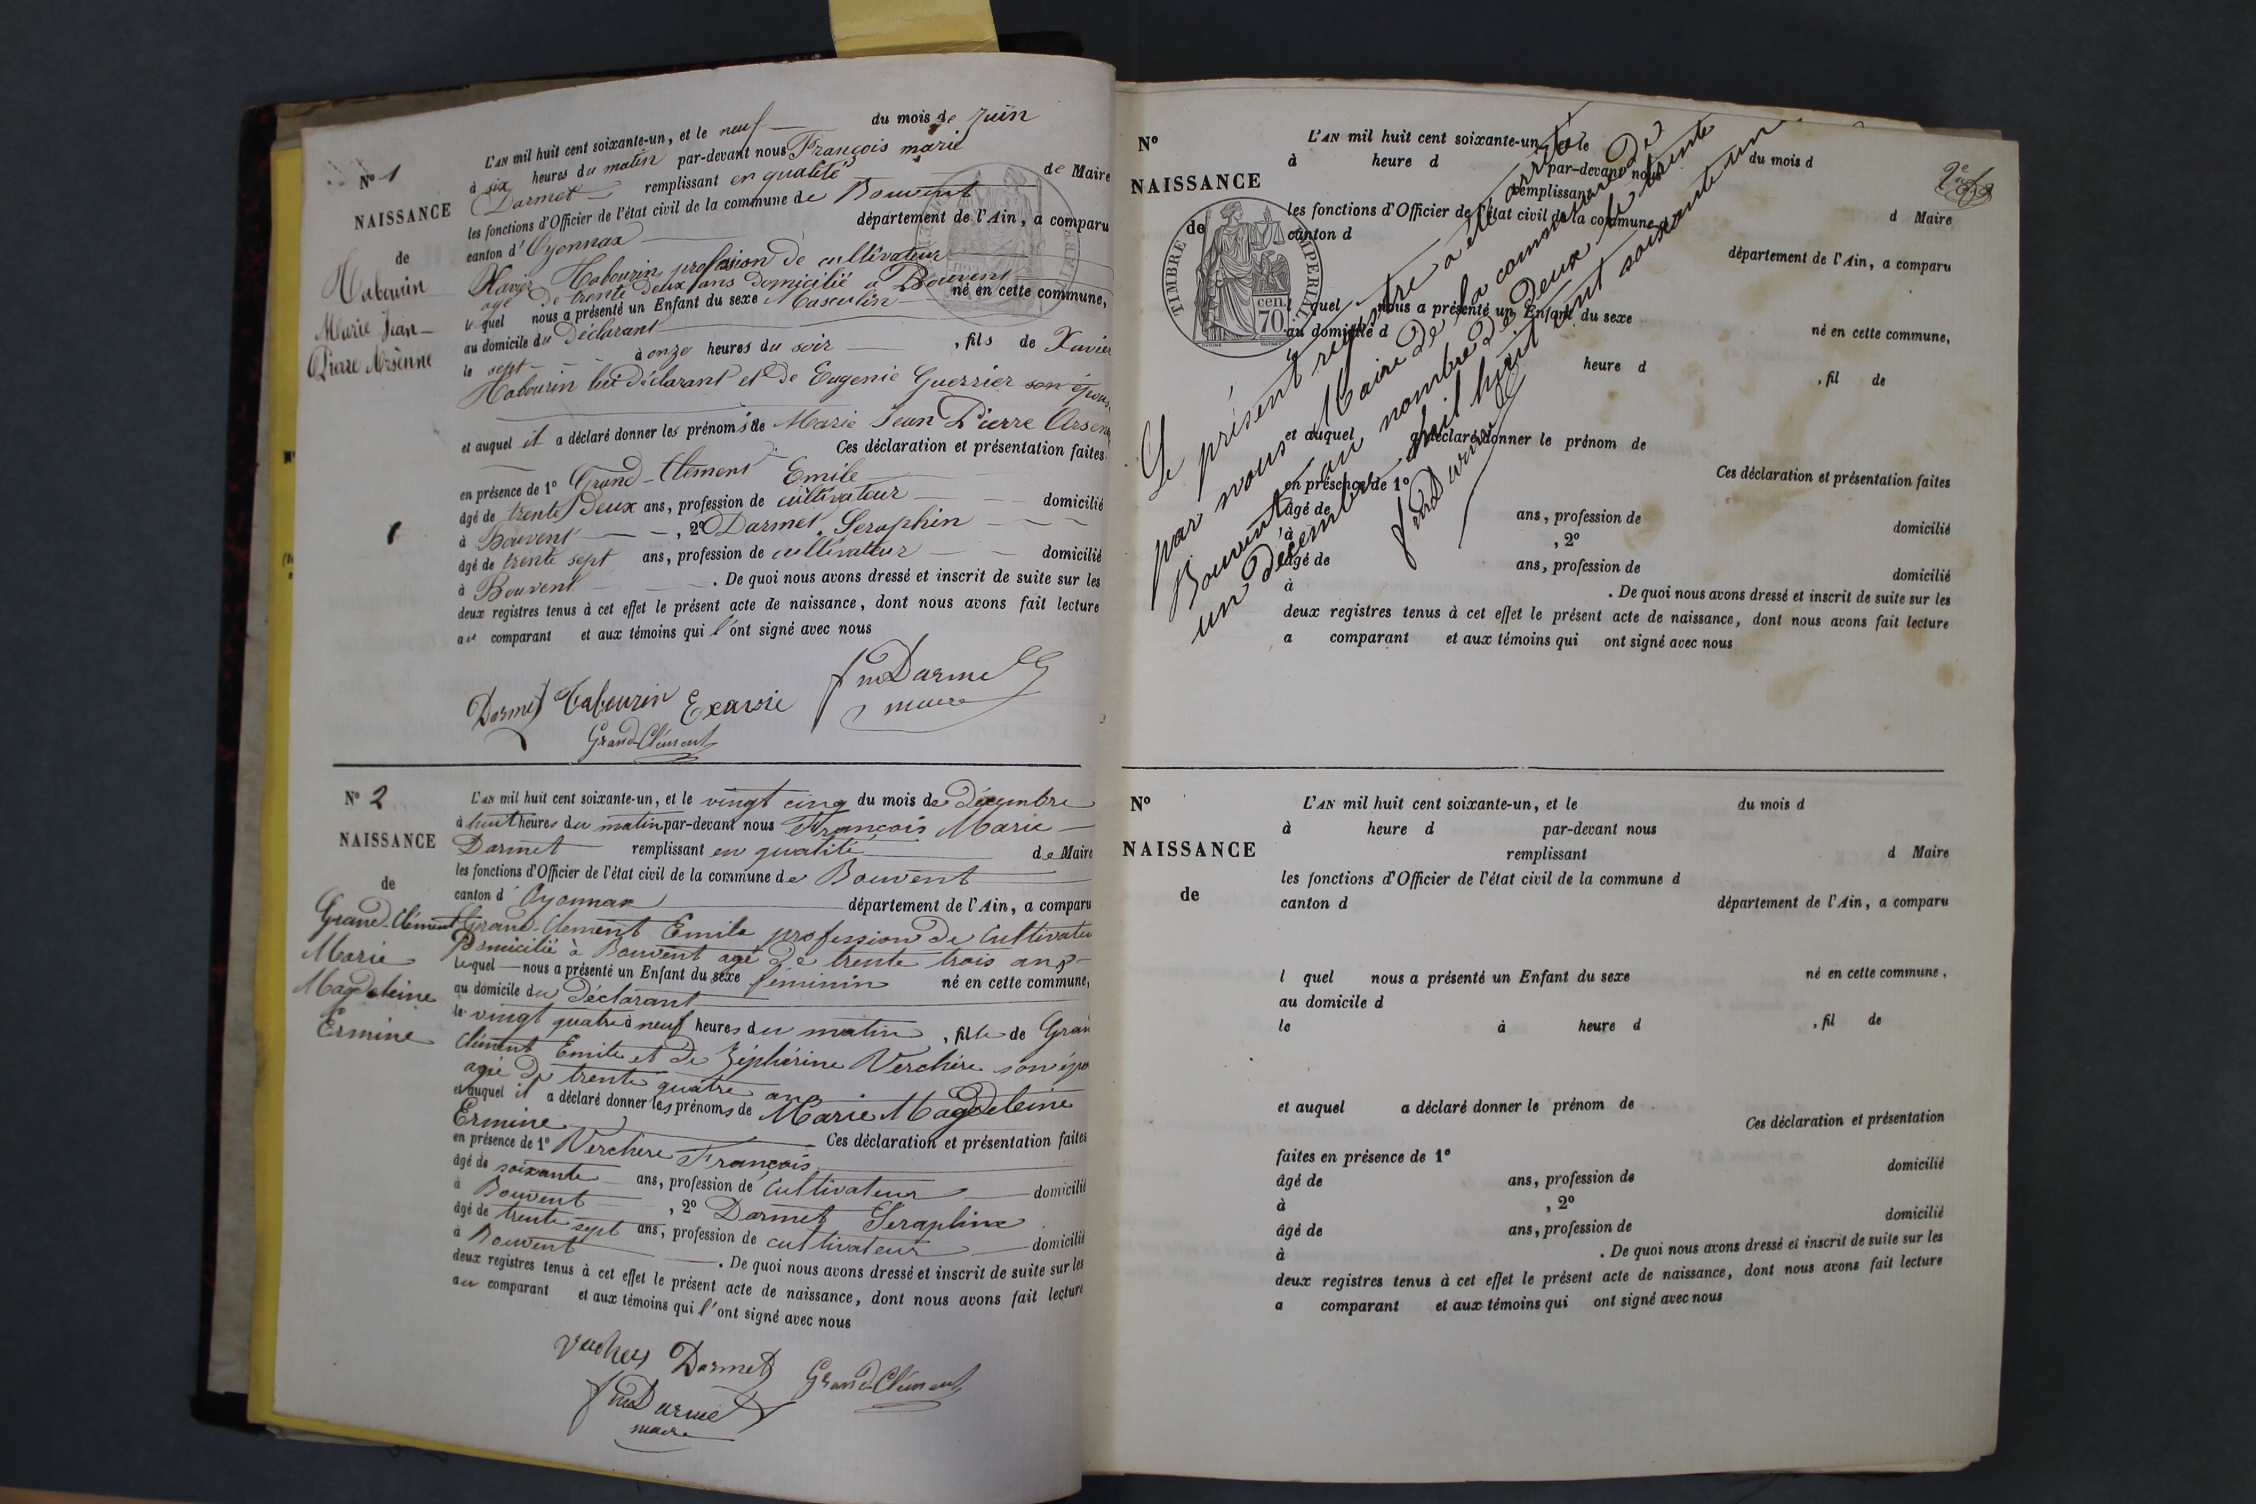 L'AN mil huit cent soixante-un, et le neuf du mois de Juin
à six heures du matin par-devant nous François marie
Darmet remplissant en qualité de Maire
les fonctions d'Officier de l'état civil de la commune de Bouvent
canton d'Oyonnax département de l'Ain, a comparu
Xavier Tabourin profession de cultivateur
agé de trente deux ans domicilié a Bouvent
lequel nous a présenté un Enfant du sexe Masculin né en cette commune,
au domicile du Déclarant
le sept à onze heures du soir, fils de Xavier
Tabourin lui déclarant et de Eugenie Guerrier son épouse
et auquel il a déclaré donner les prénoms de Marie Jean Pierre Arsene
Ces déclaration et présentation faites
en présence de 1° Grand-Clement Emile
âgé de trente Deux ans, profession de cultivateur domicilié
à Bouvent, 2° Darmet Seraphin
âgé de trente sept ans, profession de cultivateur domicilié
à Bouvent. De quoi nous avons dressé et inscrit de suite sur les
deux registres tenus à cet effet le présent acte de naissance, dont nous avons fait lecture
au comparant et aux témoins qui l'ont signé avec nous
Nº 1
NAISSANCE
de
Tabourin
Marie Jean
Pierre Arsènne
Darmet Tabourin Exavié fm Darmet
maire
Grand Clément
Nº 2
NAISSANCE
de
Grand-Clément
Marie
Magdeleine
Ermine
L'AN mil huit cent soixante-un, et le vingt cinq du mois de Décembre
à huit heures du matin par-devant nous François Marie
Darmet remplissant en qualité de Maire
les fonctions d'Officier de l'état civil de la commune de Bouvent
canton d'Oyonnax département de l'Ain, a comparu
Grand-Clement Emile profession de Cultivateu
Domicilié à Bouvent agé de trente trois ans
lequel nous a présenté un Enfant du sexe féminin né en cette commune,
au domicile du Déclarant
le vingt quatre à neuf heures du matin, fille de Gran
Clément Emile et de Zéphérine Verchère son épo
agée de trente quatre ans
et auquel il a déclaré donner les prénoms de Marie Magdeleine
Ermine Ces déclaration et présentation faites
en présence de 1° Verchère François
âgé de soixante ans, profession de Cultivateur domicilié
à Bouvent, 2° Darmet Seraphin
âgé de trente sept ans, profession de cultivateur domicilié
à Bouvent. De quoi nous avons dressé et inscrit de suite sur les
deux registres tenus à cet effet le présent acte de naissance, dont nous avons fait lecture
au comparant et aux témoins qui l'ont signé avec nous
Darmet Grand Clément
fm Darmet
maire
Nº
NAISSANCE
de
TIMBRE IMPERIAL
70 cen.
L'AN mil huit cent soixante-un, et le du mois d
à heure d par-devant nous
remplissant d Maire
les fonctions d'Officier de l'état civil de la commune d
canton d département de l'Ain, a comparu
l quel nous a présenté un Enfant du sexe né en cette commune,
au domicile d
à heure d , fil de
et auquel a déclaré donner le prénom de
Ces déclaration et présentation faites
en présence de 1°
âgé de ans, profession de domicilié
à , 2°
âgé de ans, profession de domicilié
à . De quoi nous avons dressé et inscrit de suite sur les
deux registres tenus à cet effet le présent acte de naissance, dont nous avons fait lecture
a comparant et aux témoins qui ont signé avec nous
Le présent registre a été arrêté
par nous Maire de la commune de
Bouvent au nombre de Deux le trente
un Décembre mil huit cent soixante un
fm Darmet
Nº
NAISSANCE
de
L'AN mil huit cent soixante-un, et le du mois d
à heure d par-devant nous
remplissant d Maire
les fonctions d'Officier de l'état civil de la commune d
canton d département de l'Ain, a comparu
l quel nous a présenté un Enfant du sexe né en cette commune,
au domicile d
le à heure d , fil de
et auquel a déclaré donner le prénom de
Ces déclaration et présentation
faites en présence de 1°
âgé de ans, profession de domicilié
à , 2°
âgé de ans, profession de domicilié
à . De quoi nous avons dressé et inscrit de suite sur les
deux registres tenus à cet effet le présent acte de naissance, dont nous avons fait lecture
a comparant et aux témoins qui ont signé avec nous